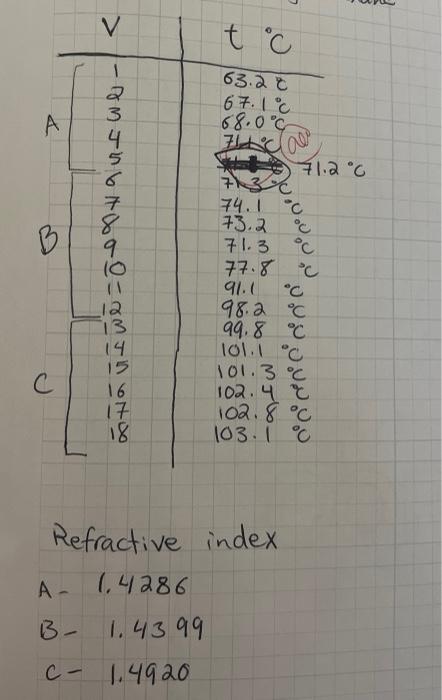 V t °C
1 63.2 °C
2 67.1 °C
3 68.0 °C
A 4 71.1 °C
5 71.2 °C
6 71.3 °C
7 74.1 °C
8 73.2 °C
B 9 71.3 °C
10 77.8 °C
11 91.1 °C
12 98.2 °C
13 99.8 °C
14 101.1 °C
15 101.3 °C
C 16 102.4 °C
17 102.8 °C
18 103.1 °C
Refractive index
A- 1.4286
B- 1.4399
C- 1.4920